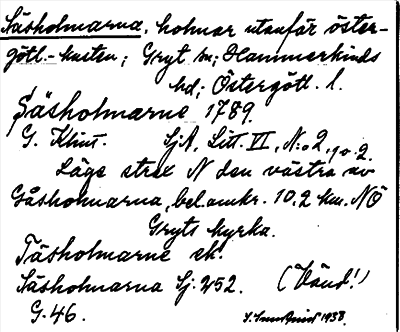 Säsholmarna, holmar utanför öster-
götl.-kusten; Gryt sn; Hammarkinds
hd; Östergötl. l.
Säsholmarne 1789.
G. Klint. SjA, Litt. VI, N:o 2, 90. 2.
Läge strax N den västra av
Gåsholmarna, bel. omkr. 10,2 km. NÖ
Gryts kyrka.
Täsholmarne ek.
Säsholmarna Sj. 252. (Vänd!)
G. 46. 1938.